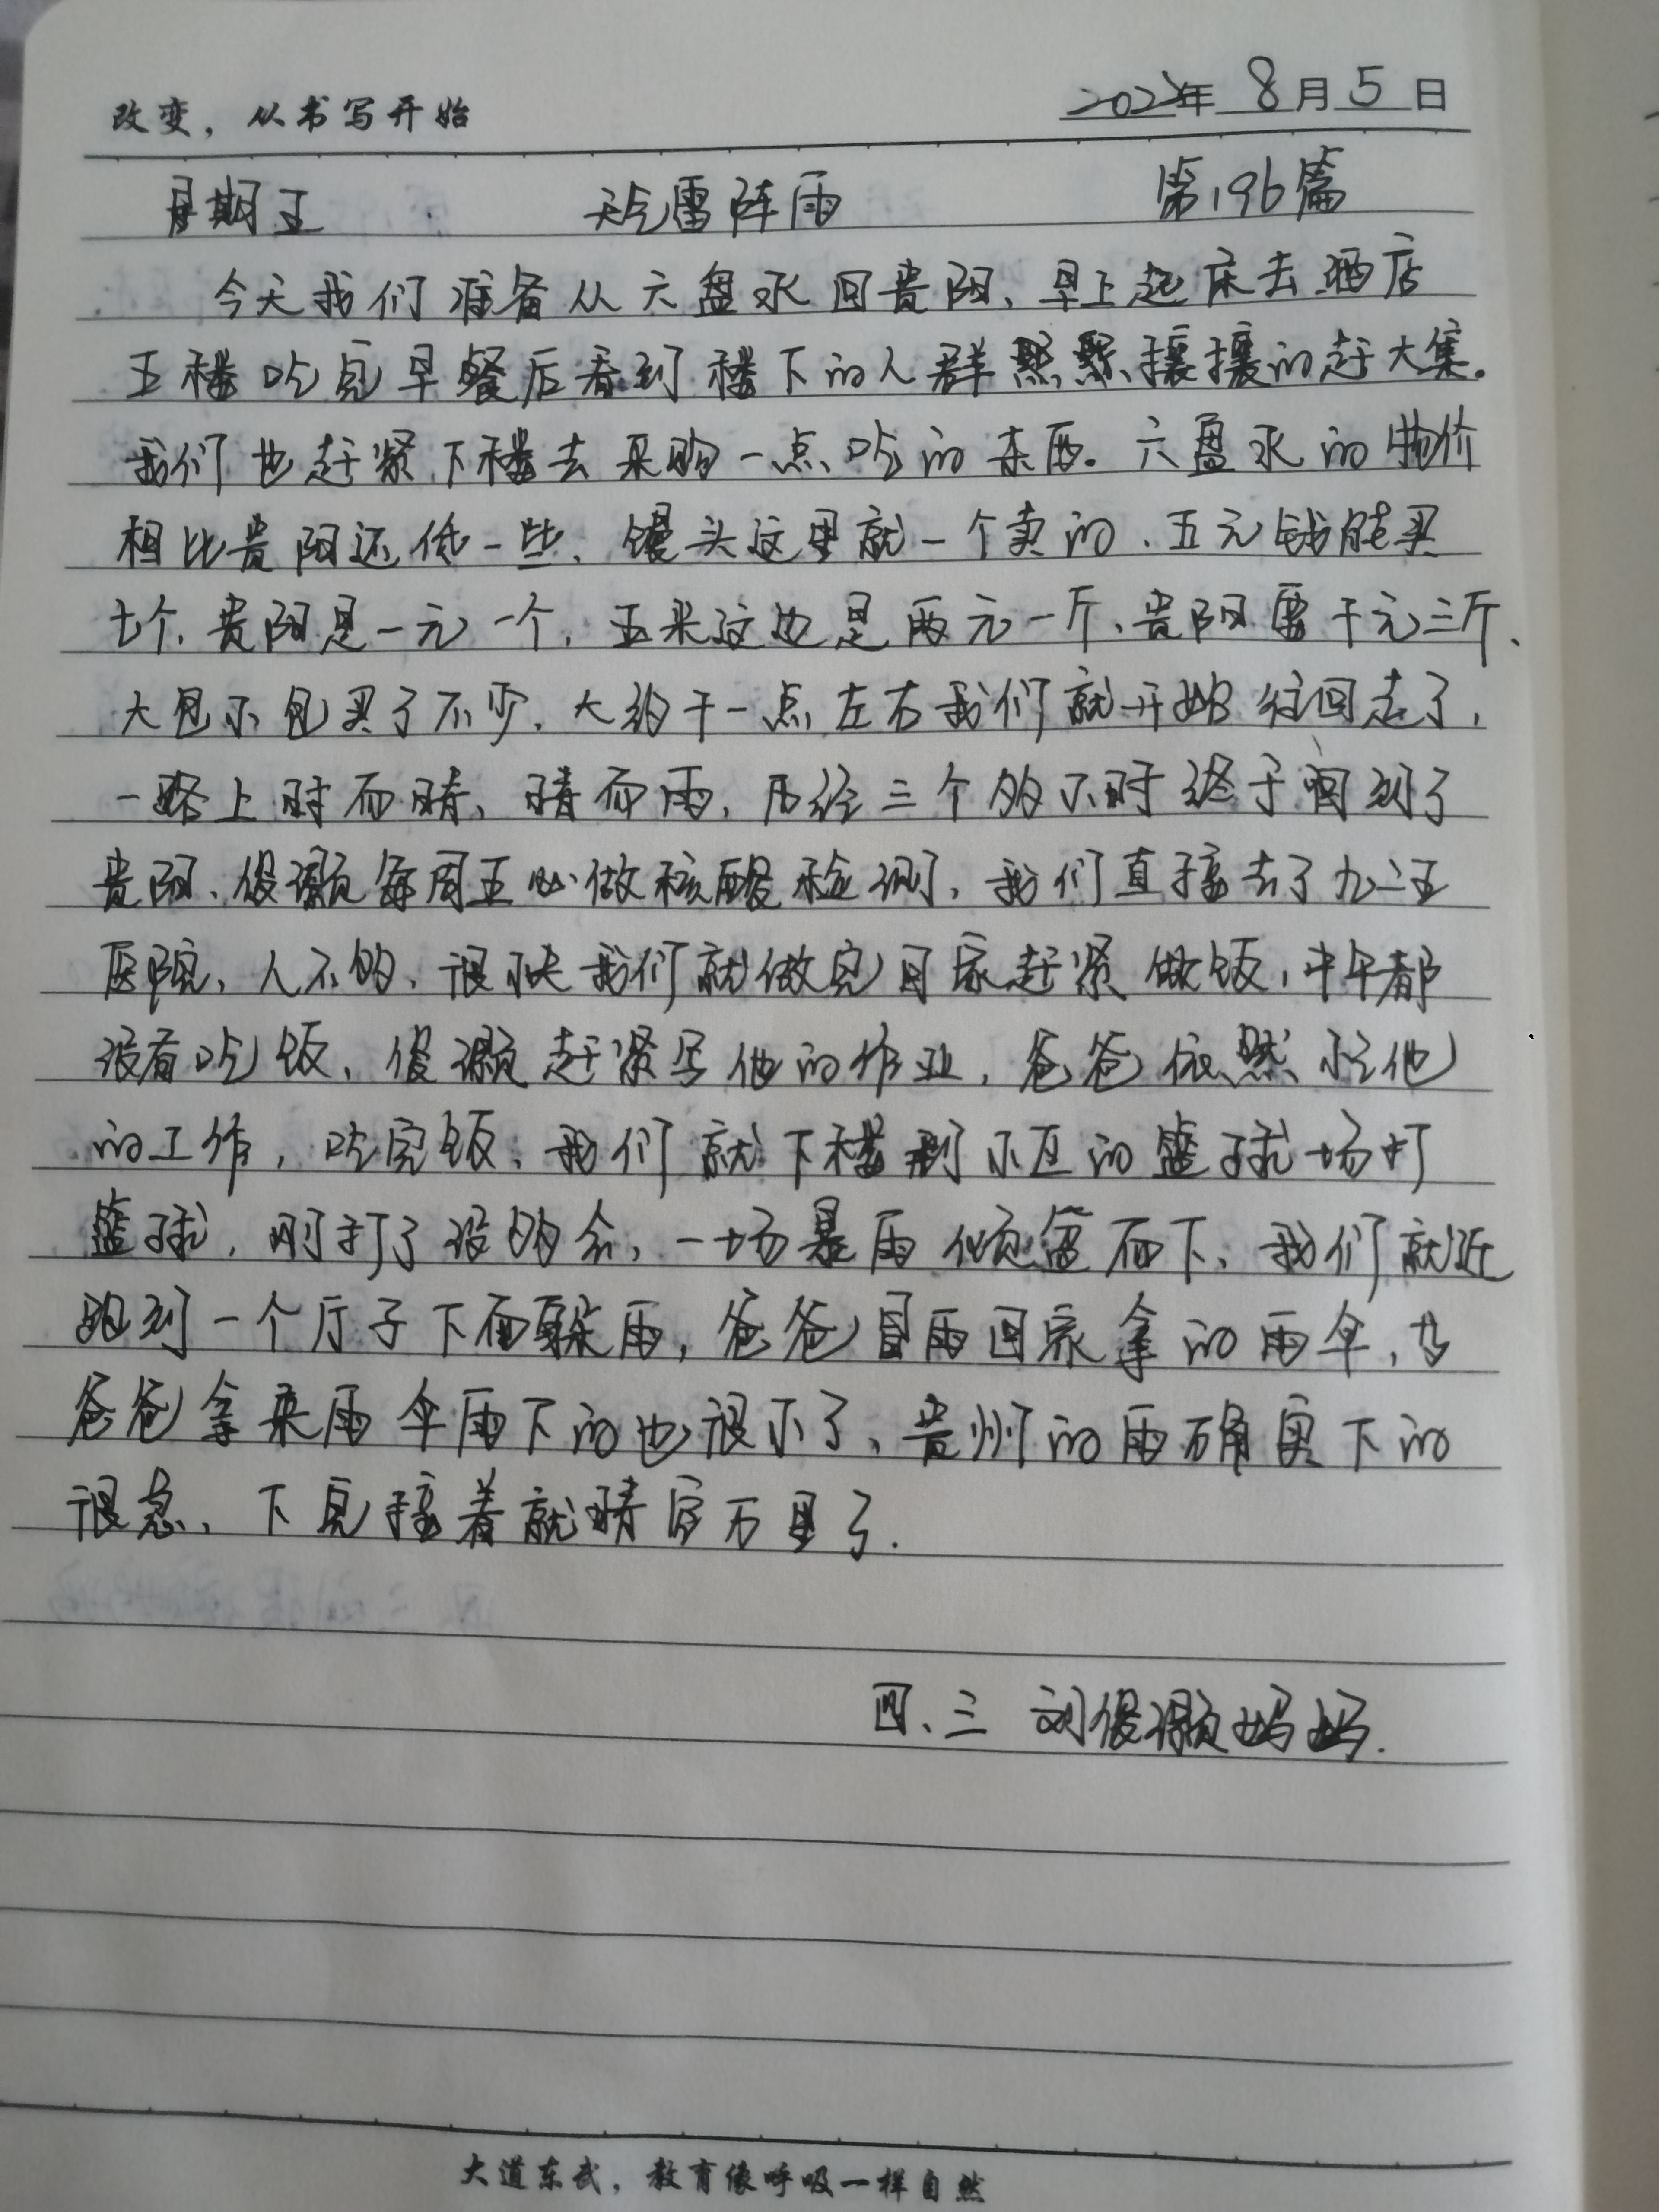 改变，从书写开始
2022年 8月5日
星期五 天气雷阵雨 第196篇
今天我们准备从六盘水回贵阳、早上起床去酒店
五楼吃完早餐后看到楼下的人群熙熙攘攘的赶大集。
我们也赶紧下楼去采购一点吃的东西。六盘水的物价
相比贵阳还低一些、馒头这里就一个卖的、五元钱能买
七个、贵阳是一元一个，玉米这边是两元一斤、贵阳要十元三斤、
大包小包买了不少，大约十一点左右我们就开始往回走了，
一路上时而晴、晴而雨，历经三个多小时终于回到了
贵阳、俊灏每周五必做核酸检测，我们直接去了九二五
医院、人不多、很快我们就做完回家赶紧做饭，中午都
没有吃饭、俊灏赶紧写他的作业，爸爸依然忙他
的工作，吃完饭、我们就下楼到小区的篮球场打
篮球，刚打了没多会，一场暴雨倾盆而下、我们就近
跑到一个厅子下面躲雨，爸爸冒雨回家拿的雨伞，等
爸爸拿来雨伞雨下的也很小了、贵州的雨确实下的
很急、下完接着就晴空万里了.
四、三 刘俊灏妈妈.
大道东武，教育像呼吸一样自然